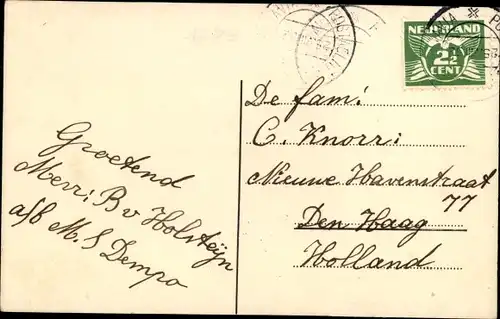 NEDERLAND
2½
CENT
De fam:
C. Knorr:
Nieuwe Havenstraat
77
Den Haag
Holland
Groetend
Mevr: B v Holsteÿn
a/b M.S Dempo